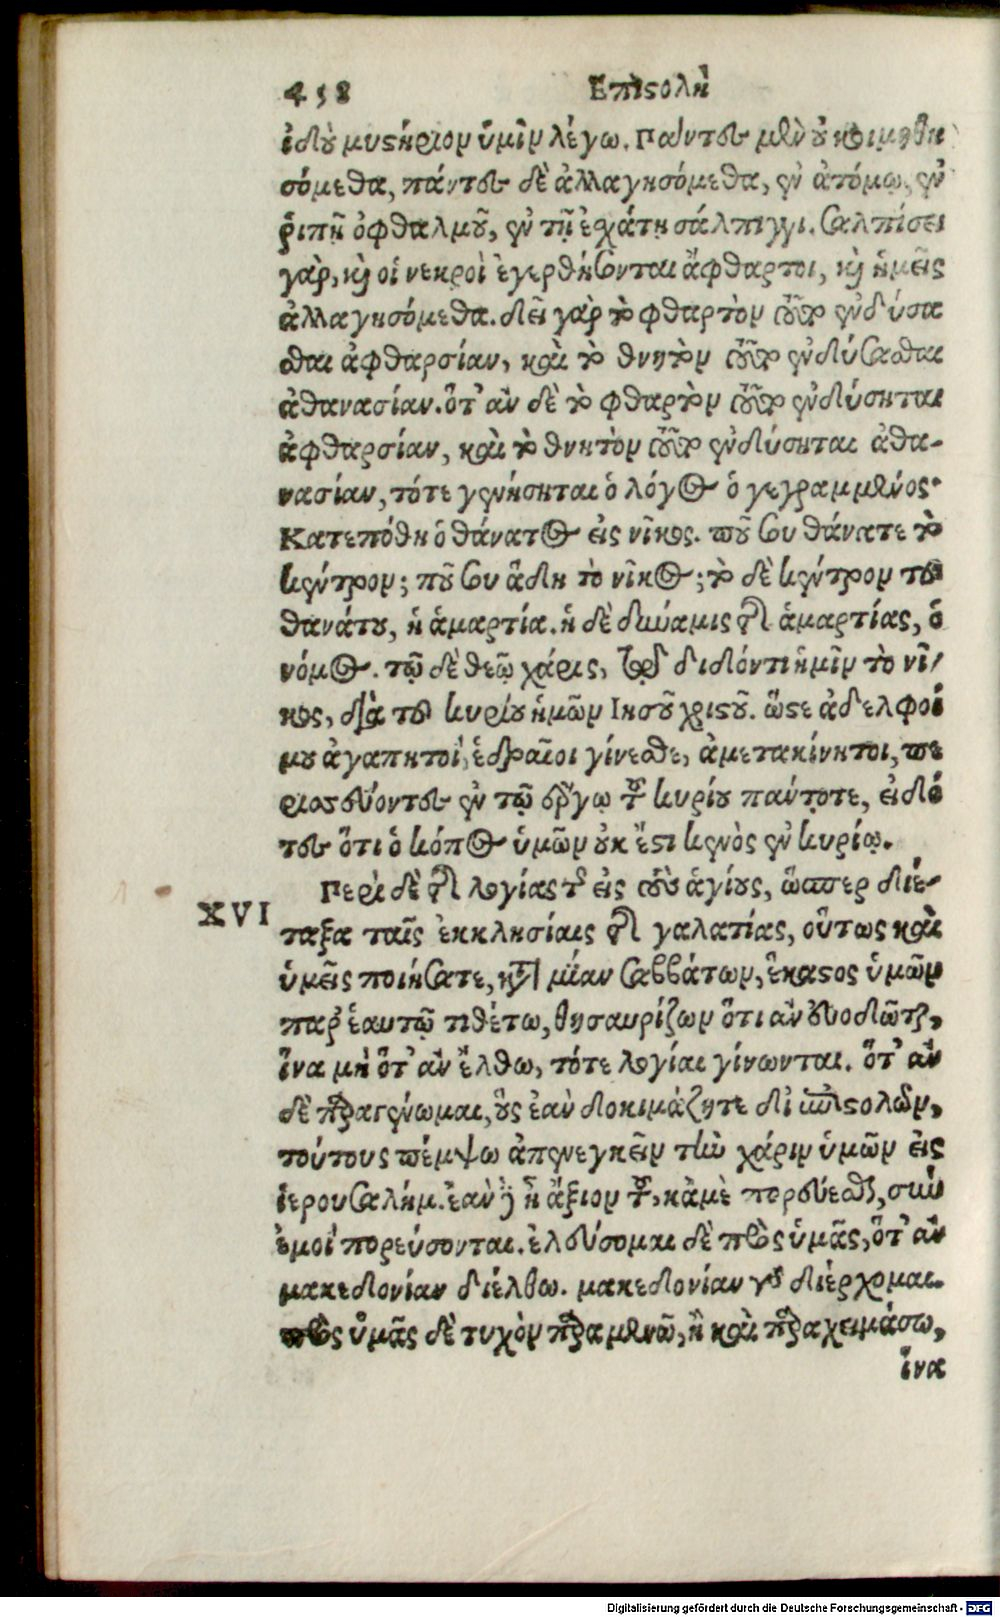 458 Επιστολὴ
ἰδοὺ μυστήριον ὑμῖν λέγω. Πάντες μὲν οὐ κοιμηθη
σόμεθα, πάντες δὲ ἀλλαγησόμεθα, ἐν ἀτόμῳ, ἐν
ῥιπῇ ὀφθαλμοῦ, ἐν τῇ ἐσχάτῃ σάλπιγγι. σαλπίσει
γὰρ, καὶ οἱ νεκροὶ ἐγερθήσονται ἄφθαρτοι, καὶ ἡμεῖς
ἀλλαγησόμεθα. δεῖ γὰρ τὸ φθαρτὸν τοῦτο ἐνδύσα
σθαι ἀφθαρσίαν, καὶ τὸ θνητὸν τοῦτο ἐνδύσασθαι
ἀθανασίαν. ὅτ' ἂν δὲ τὸ φθαρτὸν τοῦτο ἐνδύσηται
ἀφθαρσίαν, καὶ τὸ θνητὸν τοῦτο ἐνδύσηται ἀθα-
νασίαν, τότε γενήσηται ὁ λόγος ὁ γεγραμμένος·
Κατεπόθη ὁ θάνατος εἰς νῖκος. ποῦ σου θάνατε τὸ
κέντρον; ποῦ σου ᾅδη τὸ νῖκος; τὸ δὲ κέντρον τοῦ
θανάτου, ἡ ἁμαρτία. ἡ δὲ δύναμις τῆς ἁμαρτίας, ὁ
νόμος. τῷ δὲ θεῷ χάρις, τῷ διδόντι ἡμῖν τὸ νῖ/
κος, διὰ τοῦ κυρίου ἡμῶν Ιησοῦ χριστοῦ. ὥστε ἀδελφοί
μου ἀγαπητοί, ἑδραῖοι γίνεσθε, ἀμετακίνητοι, πε
ρισσεύοντες ἐν τῷ ἔργῳ τοῦ κυρίου πάντοτε, εἰδό
τες ὅτι ὁ κόπος ὑμῶν οὐκ ἔστι κενὸς ἐν κυρίῳ.
XVI Περὶ δὲ τῆς λογίας τῆς εἰς τοὺς ἁγίους, ὥσπερ διέ-
ταξα ταῖς ἐκκλησίαις τῆς γαλατίας, οὕτως καὶ
ὑμεῖς ποιήσατε, κατὰ μίαν σαββάτων, ἕκαστος ὑμῶν
παρ' ἑαυτῷ τιθέτω, θησαυρίζων ὅτι ἂν εὐοδῶται,
ἵνα μὴ ὅτ' ἂν ἔλθω, τότε λογίαι γίνωνται. ὅτ' ἂν
δὲ παραγένωμαι, οὓς ἐὰν δοκιμάζητε δι' ἐπιστολῶν,
τούτους πέμψω ἀπενεγκεῖν τὴν χάριν ὑμῶν εἰς
ἱερουσαλήμ. ἐὰν δὲ ᾖ ἄξιον τοῦ, κἀμὲ πορεύεσθαι, σὺν
ἐμοὶ πορεύσονται. ἐλεύσομαι δὲ πρὸς ὑμᾶς, ὅτ' ἂν
μακεδονίαν διέλθω. μακεδονίαν γὰρ διέρχομαι.
πρὸς ὑμᾶς δὲ τυχὸν παραμενῶ, ἢ καὶ παραχειμάσω,
ἵνα
Digitalisierung gefördert durch die Deutsche Forschungsgemeinschaft - DFG